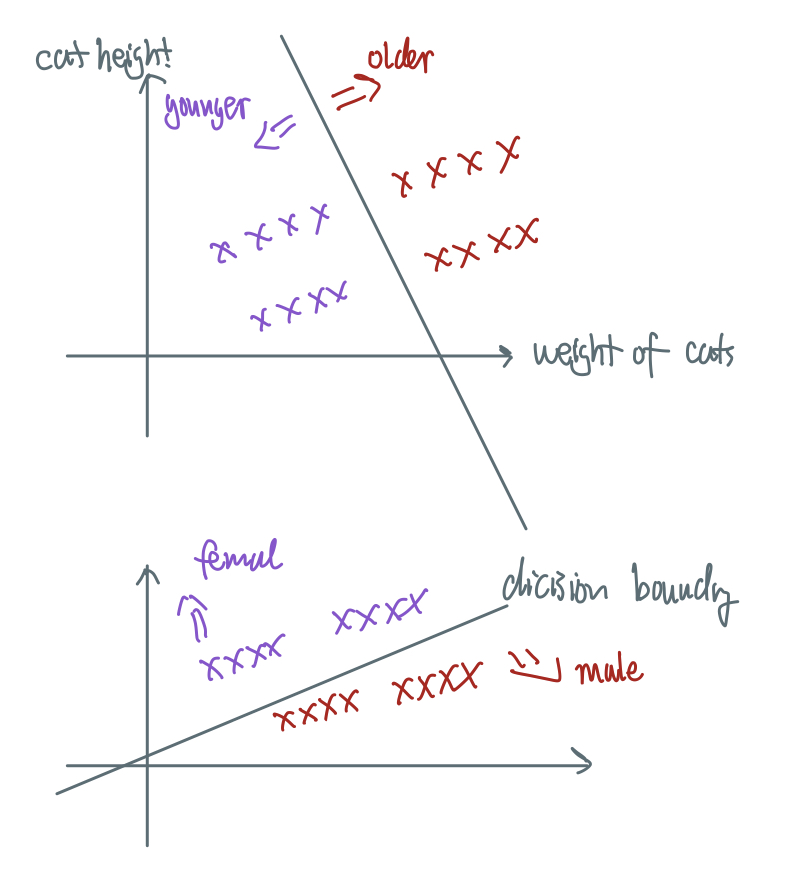 cat height
older
younger
x x x x
x x x x
x x x x
x x x x
weight of cats
femal
dicision boundry
x x x x x x x x
male
x x x x x x x x